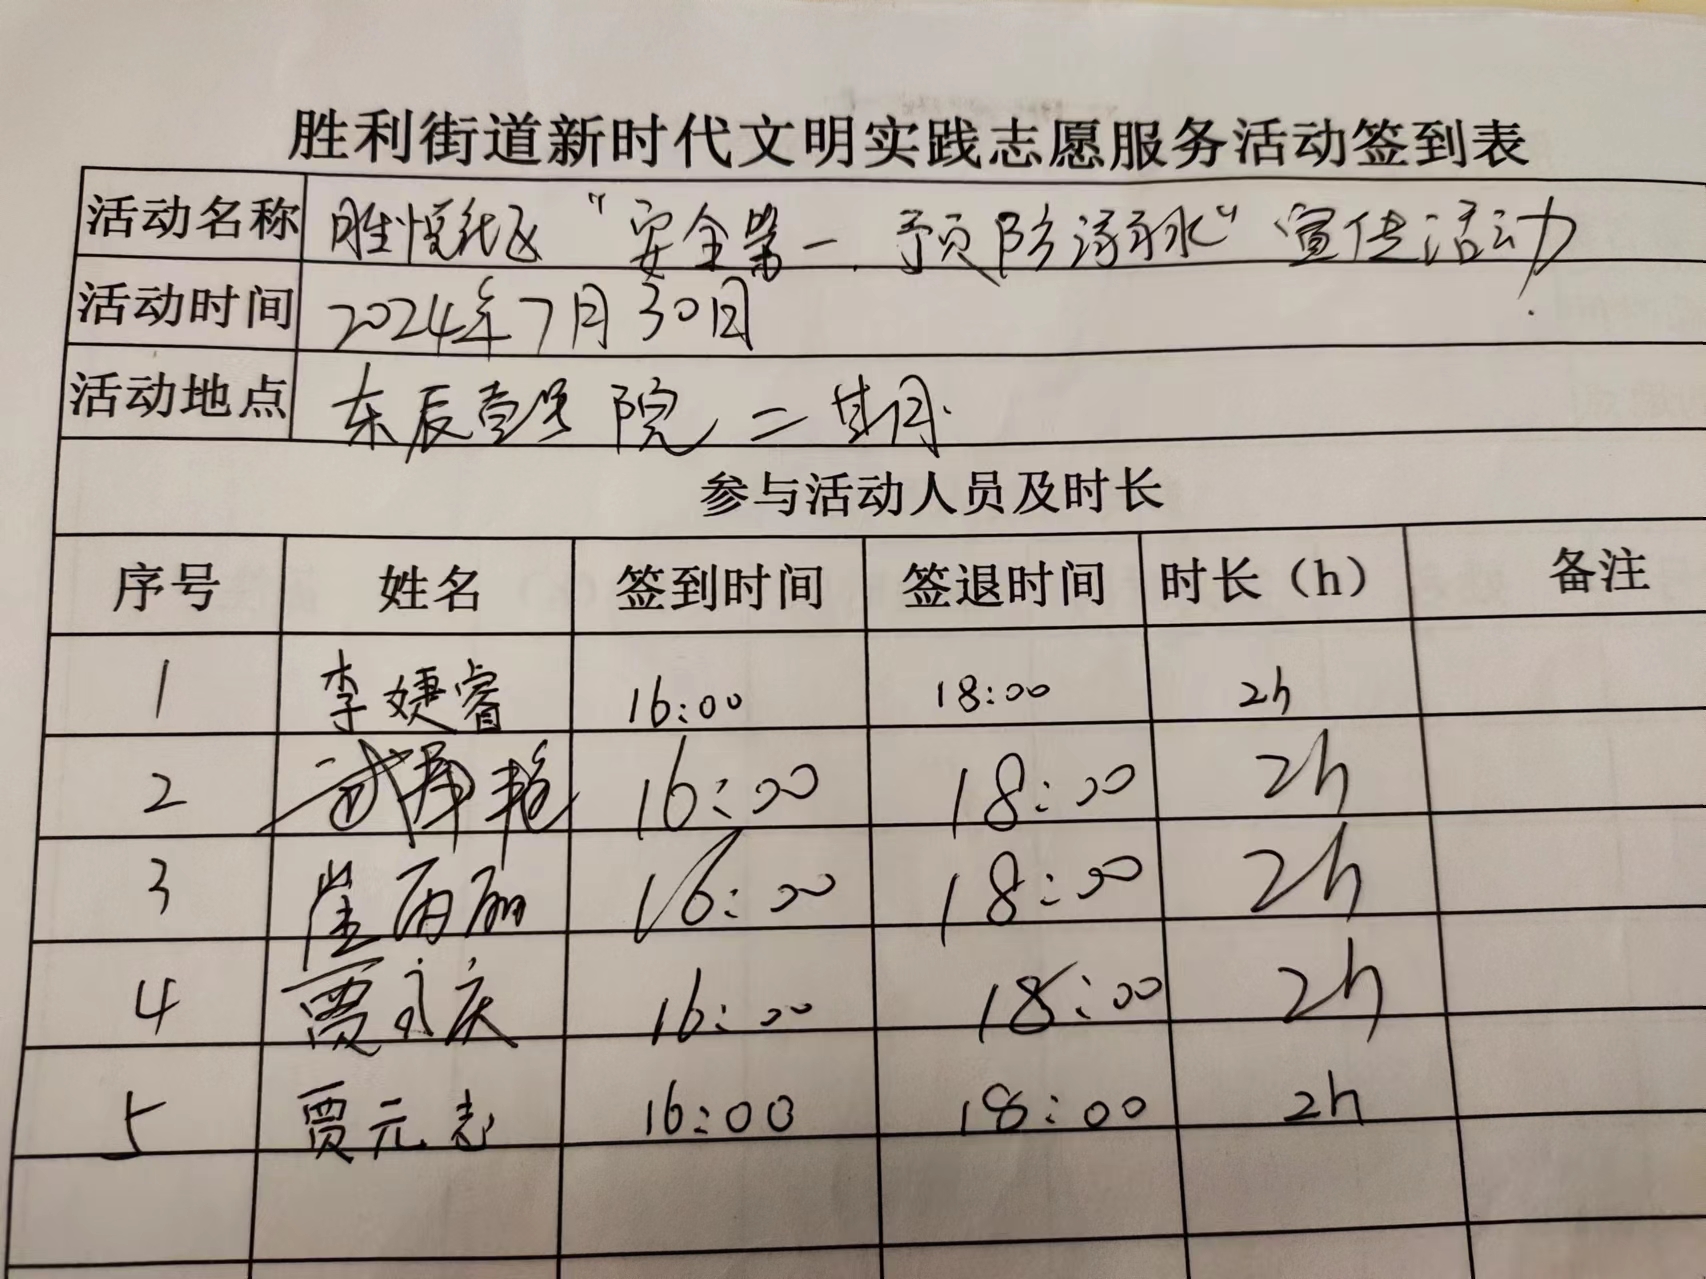 胜利街道新时代文明实践志愿服务活动签到表
活动名称 胜悦社区“安全第一 预防溺水”宣传活动
活动时间 2024年7月30日
活动地点 东辰壹学院二期
参与活动人员及时长
序号 姓名 签到时间 签退时间 时长（h） 备注
1 李婕睿 16:00 18:00 2h
2 武艳 16:00 18:00 2h
3 崔丽丽 16:00 18:00 2h
4 贾永庆 16:00 18:00 2h
5 贾元志 16:00 18:00 2h